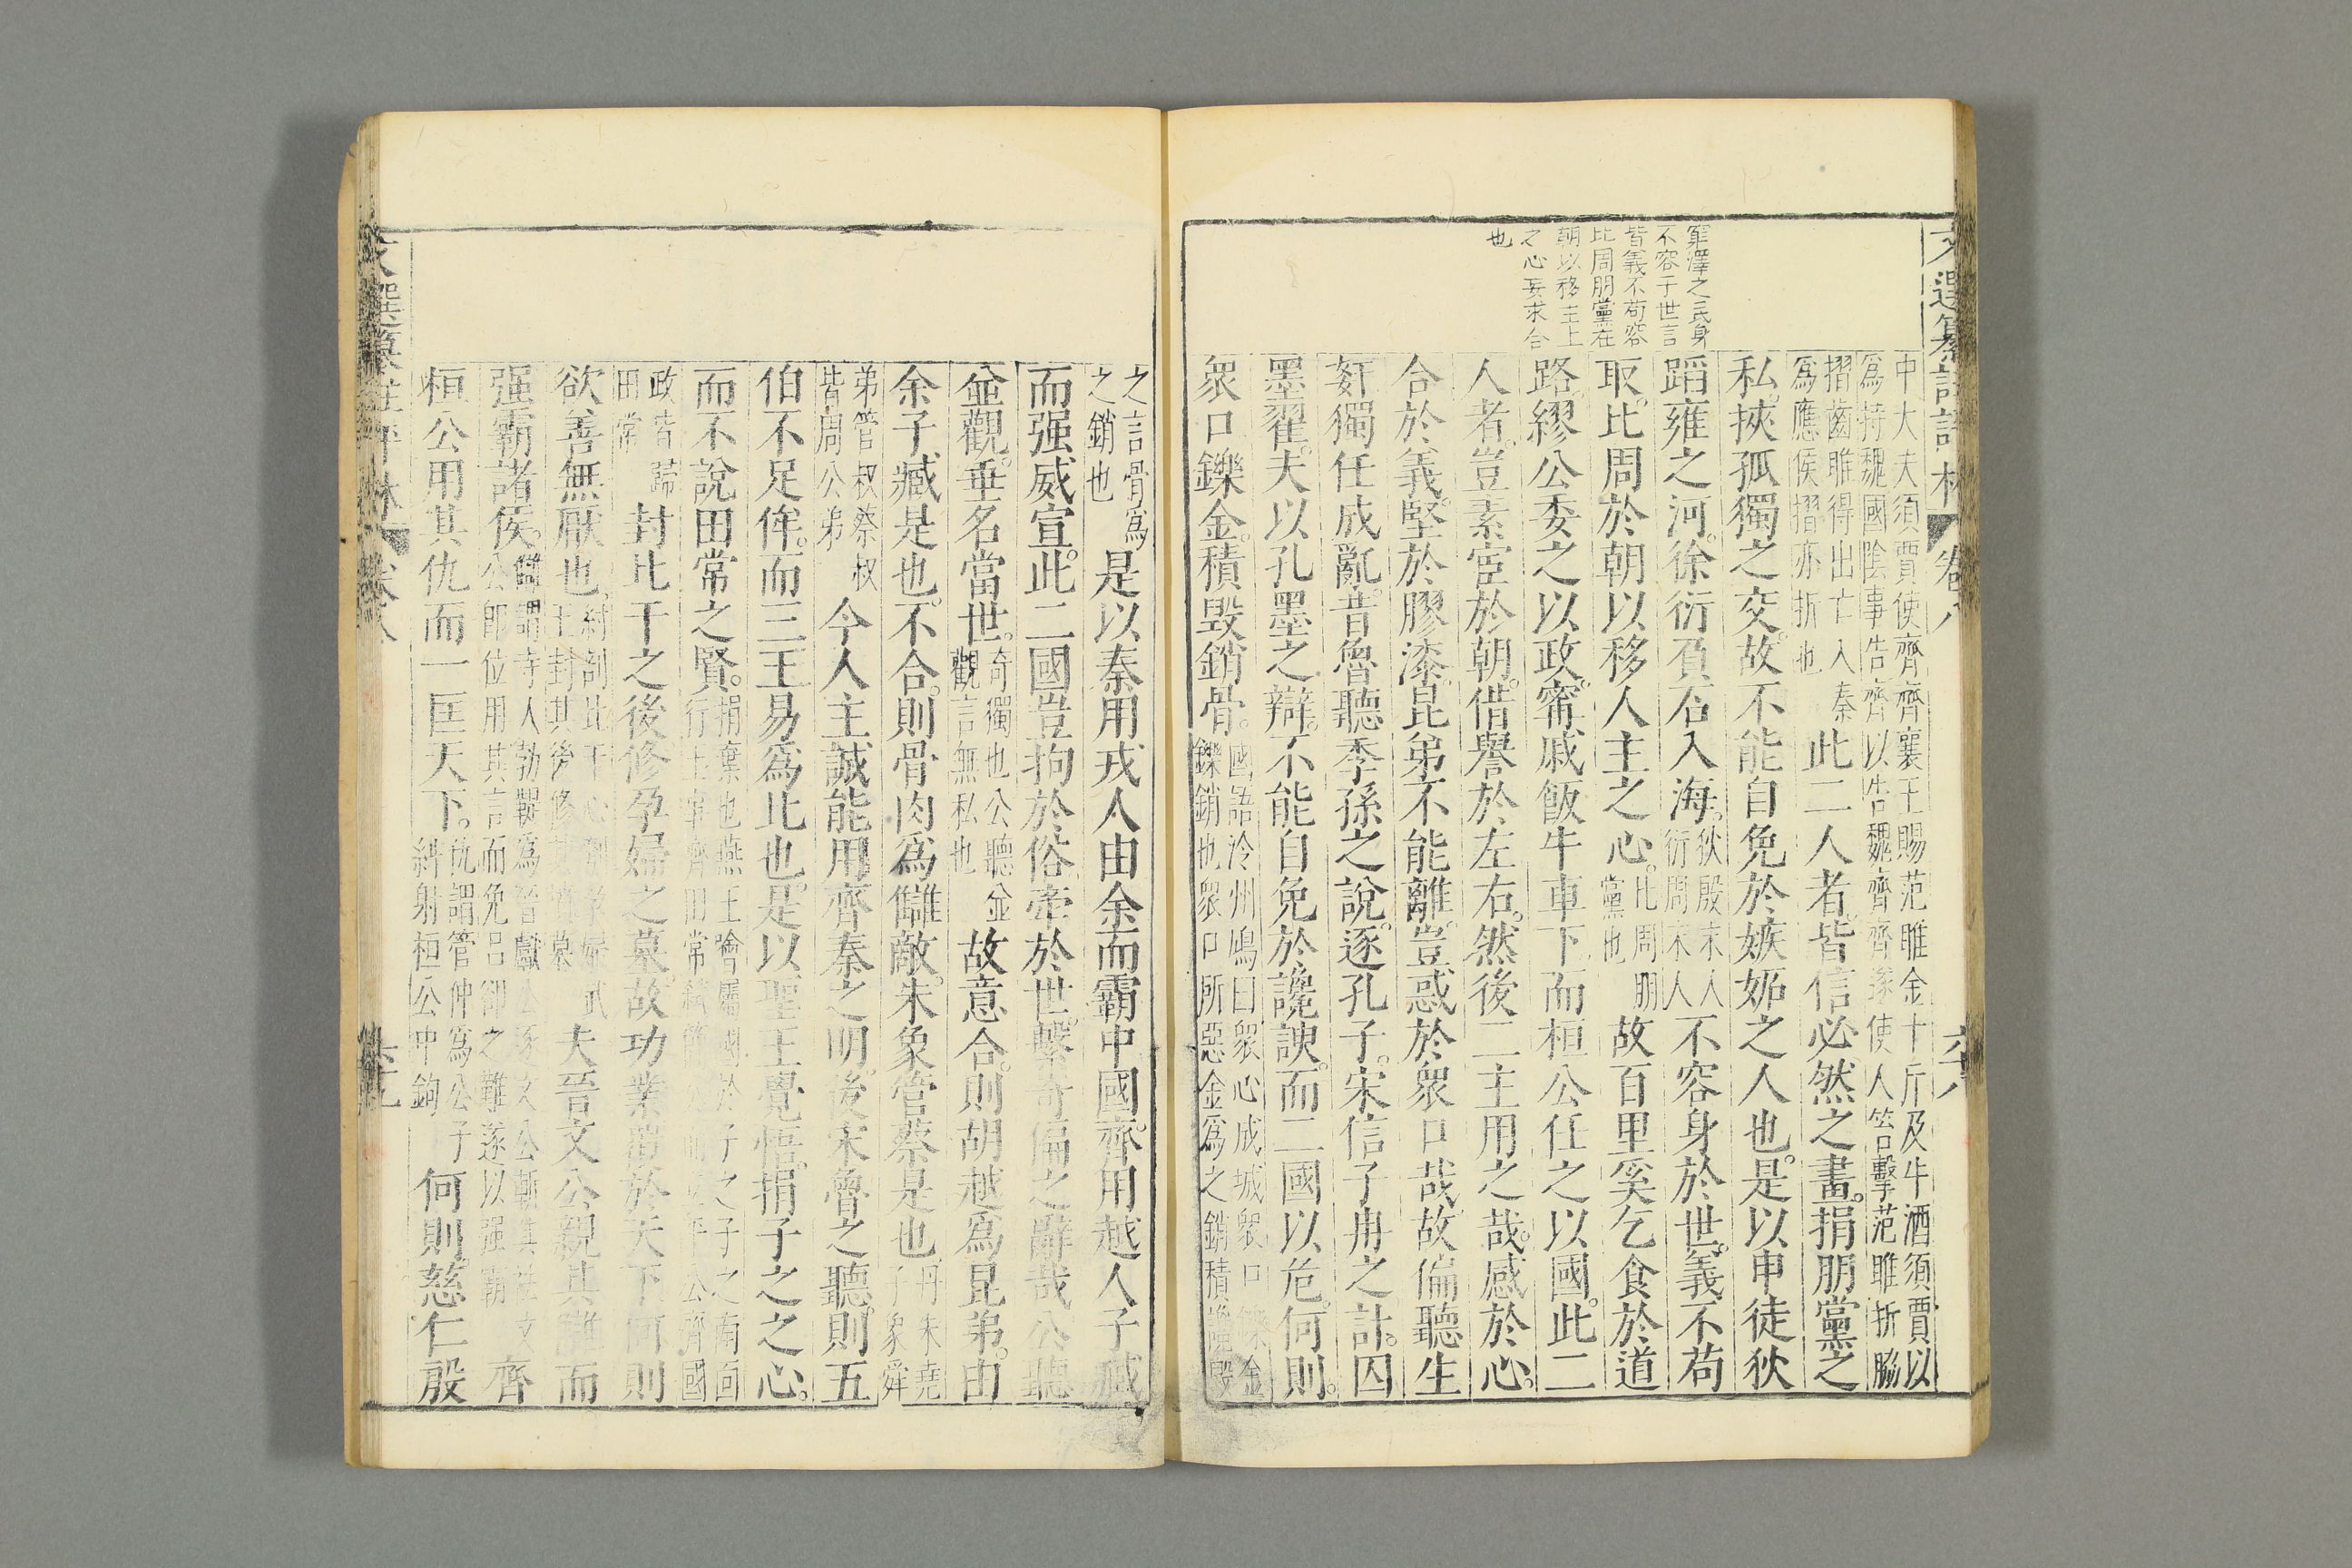 窮澤之民身
不容于世言
皆義不苟容
比周朋黨在
朝以移主上
之心妄求合
也
中大夫須賈使齊齊襄王賜范雎金十斤及牛酒須賈以
爲持魏國陰事告齊以告魏齊魏齊遂使人笞擊范雎折脇
摺齒雎得出亡入秦
爲應侯摺亦折也
此二人者皆信必然之畫捐朋黨之
私挾孤獨之交故不能自免於嫉妬之人也是以申徒狄
蹈雍之河徐衍負石入海狄殷末人衍周末人不容身於世義不苟
取比周於朝以移人主之心比周朋黨也故百里奚乞食於道
路繆公委之以政甯戚飯牛車下而桓公任之以國此二
人者豈素宦於朝借譽於左右然後二主用之哉感於心
合於義堅於膠漆昆弟不能離豈惑於衆口哉故偏聽生
姧獨任成亂昔魯聽季孫之說逐孔子宋信子冉之計囚
墨翟夫以孔墨之辯不能自免於讒諛而二國以危何則
衆口鑠金積毀銷骨國語泠州鳩曰衆心成城衆口鑠金鑠銷也衆口所惡金爲之銷積讒毀
之言骨爲之銷也是以秦用戎人由余而霸中國齊用越人子臧
而强威宣此二國豈拘於俗牽於世繫奇偏之辭哉公聽
並觀垂名當世奇獨也公聽並觀言無私也故意合則胡越爲昆弟由
余子臧是也不合則骨肉爲讎敵朱象管蔡是也丹朱堯子象舜
弟管叔蔡叔皆周公弟今人主誠能用齊秦之明後宋魯之聽則五
伯不足侔而三王易爲也是以聖王覺悟捐子之之心
而不說田常之賢捐棄也燕王噲屬國於子之子之南面行王事齊田常弑簡公而立平公齊國
政皆歸田常封比干之後修孕婦之墓故功業覆於天下何則
欲善無厭也紂剖比干心刳孕婦武王封其後修其墓夫晉文公親其讎而
强霸諸侯讎謂寺人勃鞮爲晉獻公逐文公斬其袪文公即位用其言而免呂郤之難遂以强霸齊
桓公用其仇而一匡天下仇謂管仲爲公子糾射桓公中鉤何則慈仁殷
文選纂註評林 卷八 六八
文選纂註評林 卷八